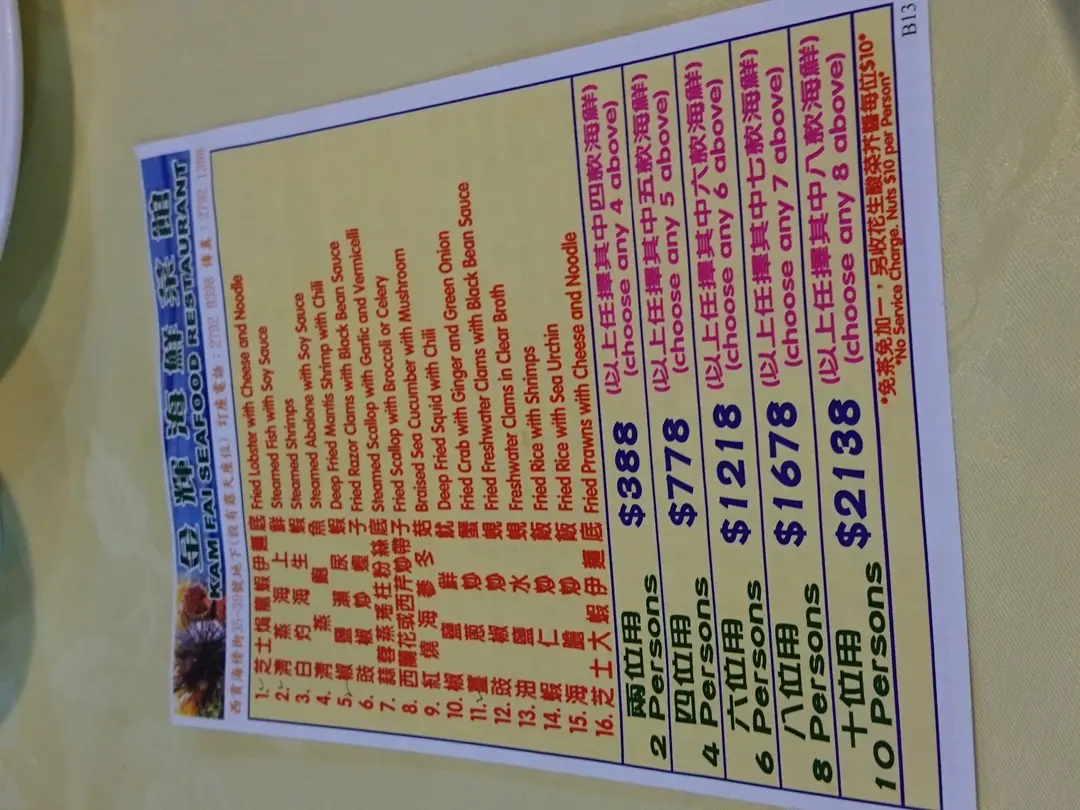 金輝海鮮菜館
KAM FAI SEAFOOD RESTAURANT
西貢海傍街35-39號地下(設有露天座位) 訂座電話:2792 9398 傳真:2792 1398
1. 芝士焗龍蝦伊麵底 Fried Lobster with Cheese and Noodle
2. 清蒸海上鮮 Steamed Fish with Soy Sauce
3. 白灼海生蝦 Steamed Shrimps
4. 清蒸鮑魚 Steamed Abalone with Soy Sauce
5. 椒鹽瀨尿蝦 Deep Fried Mantis Shrimp with Chili
6. 豉椒炒蟶子 Fried Razor Clams with Black Bean Sauce
7. 蒜蓉蒸瑤柱粉絲底 Steamed Scallop with Garlic and Vermicelli
8. 西蘭花或西芹炒帶子 Fried Scallop with Broccoli or Celery
9. 紅燒海參冬菇 Braised Sea Cucumber with Mushroom
10. 椒鹽鮮魷 Deep Fried Squid with Chili
11. 薑蔥炒蟹 Fried Crab with Ginger and Green Onion
12. 豉椒炒蜆 Fried Freshwater Clams with Black Bean Sauce
13. 油鹽水蜆 Freshwater Clams in Clear Broth
14. 蝦仁炒飯 Fried Rice with Shrimps
15. 海膽炒飯 Fried Rice with Sea Urchin
16. 芝士大蝦伊麵底 Fried Prawns with Cheese and Noodle
兩位用 $388 (以上任擇其中四款海鮮)
2 Persons (choose any 4 above)
四位用 $778 (以上任擇其中五款海鮮)
4 Persons (choose any 5 above)
六位用 $1218 (以上任擇其中六款海鮮)
6 Persons (choose any 6 above)
八位用 $1678 (以上任擇其中七款海鮮)
8 Persons (choose any 7 above)
十位用 $2138 (以上任擇其中八款海鮮)
10 Persons (choose any 8 above)
*免茶免加一,另收花生酸菜芥醬每位$10*
*No Service Charge. Nuts $10 per Person*
B13